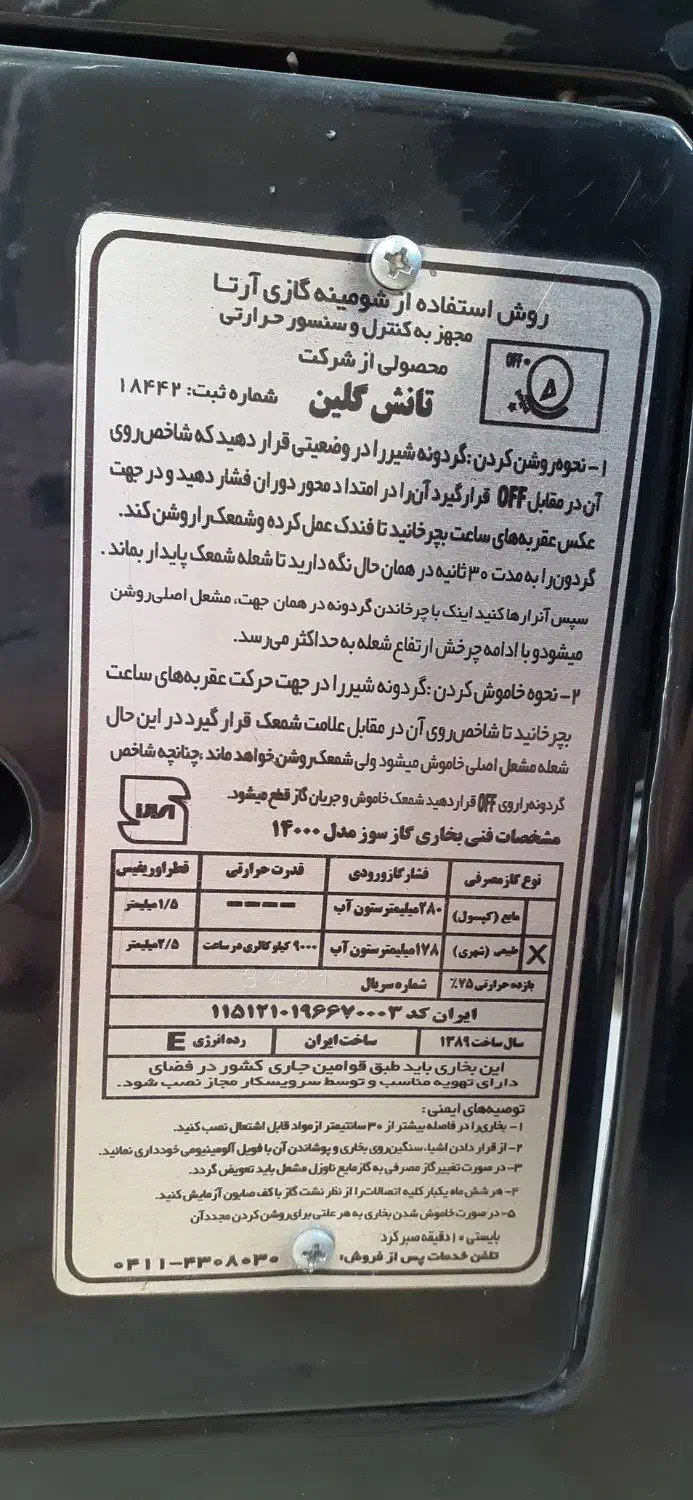 روش استفاده از شومینه گازی آرتا
مجهز به کنترل و سنسور حرارتی
محصولی از شرکت
OFF
تانش گلین شماره ثبت: ۱۸۴۴۲
۱- نحوه روشن کردن : گردونه شیر را در وضعیتی قرار دهید که شاخص روی
آن در مقابل OFF قرار گیرد آن را در امتداد محور دوران فشار دهید و در جهت
عکس عقربه های ساعت بچرخانید تا فندک عمل کرده و شمعک را روشن کند.
گردون را به مدت ۳۰ ثانیه در همان حال نگه دارید تا شعله شمعک پایدار بماند .
سپس آنرا رها کنید اینک با چرخاندن گردونه در همان جهت، مشعل اصلی روشن
میشود و با ادامه چرخش ارتفاع شعله به حداکثر می رسد.
۲- نحوه خاموش کردن : گردونه شیر را در جهت حرکت عقربه های ساعت
بچرخانید تا شاخص روی آن در مقابل علامت شمعک قرار گیرد در این حال
شعله مشعل اصلی خاموش میشود ولی شمعک روشن خواهد ماند ،چنانچه شاخص
گردونه را روی OFF قرار دهید شمعک خاموش و جریان گاز قطع میشود.
مشخصات فنی بخاری گاز سوز مدل ۱۴۰۰۰
نوع گاز مصرفی فشار گاز ورودی قدرت حرارتی قطر اوریفیس
مایع (کپسول) ۲۸۰ میلیمتر ستون آب ---- ۱/۵ میلیمتر
X طبیعی (شهری) ۱۷۸ میلیمتر ستون آب ۹۰۰۰ کیلو کالری در ساعت ۲/۵ میلیمتر
بازده حرارتی ۷۵٪ شماره سریال 3421
ایران کد ۱۱۵۱۲۱۰۱۹۶۶۷۰۰۰۳
سال ساخت ۱۳۸۹ ساخت ایران رده انرژی E
این بخاری باید طبق قوامین جاری کشور در فضای
دارای تهویه مناسب و توسط سرویسکار مجاز نصب شود.
توصیه های ایمنی :
۱- بخاری را در فاصله بیشتر از ۳۰ سانتیمتر از مواد قابل اشتعال نصب کنید.
۲- از قرار دادن اشیا، سنگین روی بخاری و پوشاندن آن با فویل آلومینیومی خودداری نمائید.
۳- در صورت تغییر گاز مصرفی به گاز مایع ناوزل مشعل باید تعویض گردد.
۴- هر شش ماه یکبار کلیه اتصالات را از نظر نشت گاز با کف صابون آزمایش کنید.
۵- در صورت خاموش شدن بخاری به هر علتی برای روشن کردن مجدد آن
بایستی ۱۰ دقیقه صبر کرد
تلفن خدمات پس از فروش: ۰۴۱۱-۴۳۰۸۰۳۰